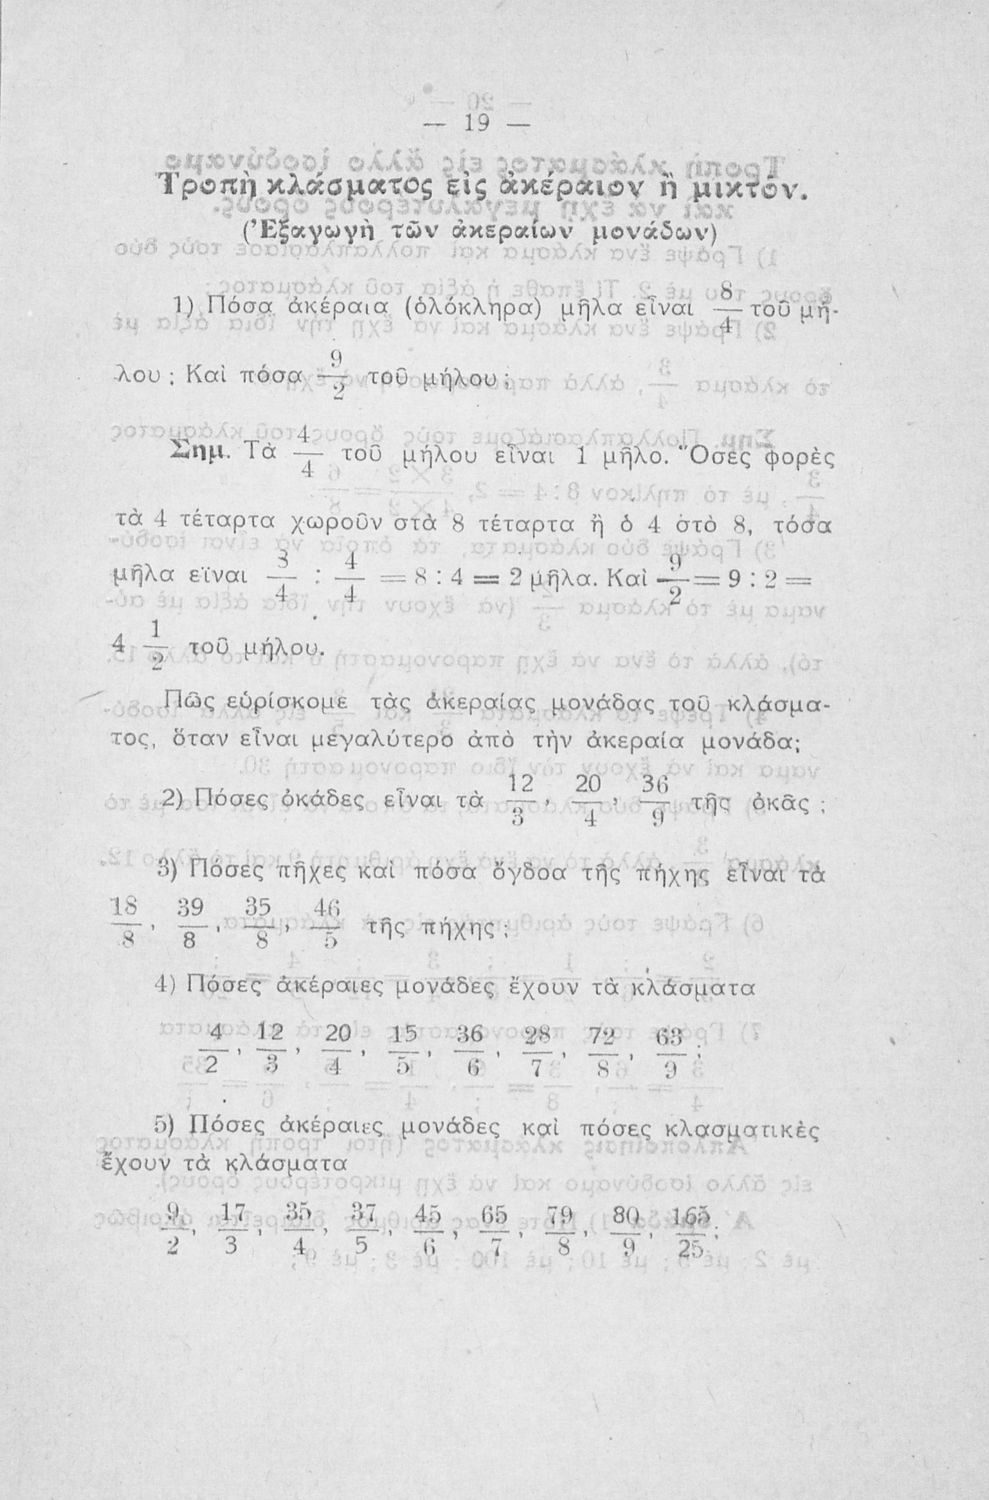 — 19 —
Τροπὴ κλάσματος εἰς ἀκέραιον ἢ μικτόν.
(Ἐξαγωγὴ τῶν ἀκεραίων μονάδων)
1) Πόσα ἀκέραια (ὁλόκληρα) μῆλα εἶναι 8/4 τοῦ μή-
λου ; Καὶ πόσα 9/2 τοῦ μήλου ;
Σημ. Τὰ 4/4 τοῦ μήλου εἶναι 1 μῆλο. Ὅσες φορὲς
τὰ 4 τέταρτα χωροῦν στὰ 8 τέταρτα ἢ ὁ 4 στὸ 8, τόσα
μῆλα εἶναι 3/4 : 4/4 = 8 : 4 = 2 μῆλα. Καὶ 9/2 = 9 : 2 =
4 1/2 τοῦ μήλου.
Πῶς εὑρίσκομε τὰς ἀκεραίας μονάδας τοῦ κλάσμα-
τος, ὅταν εἶναι μεγαλύτερο ἀπὸ τὴν ἀκεραία μονάδα;
2) Πόσες ὀκάδες εἶναι τὰ 12/3, 20/4, 36/9 τῆς ὀκᾶς ;
3) Πόσες πῆχες καὶ πόσα ὄγδοα τῆς πήχης εἶναι τὰ
18/8, 39/8, 35/8, 46/5 τῆς πήχης ;
4) Πόσες ἀκέραιες μονάδες ἔχουν τὰ κλάσματα
4/2, 12/3, 20/4, 15/5, 36/6, 28/7, 72/8, 63/9 ;
5) Πόσες ἀκέραιες μονάδες καὶ πόσες κλασματικὲς
ἔχουν τὰ κλάσματα
9/2, 17/3, 35/4, 37/5, 45/6, 65/7, 79/8, 80/9, 165/25 ;